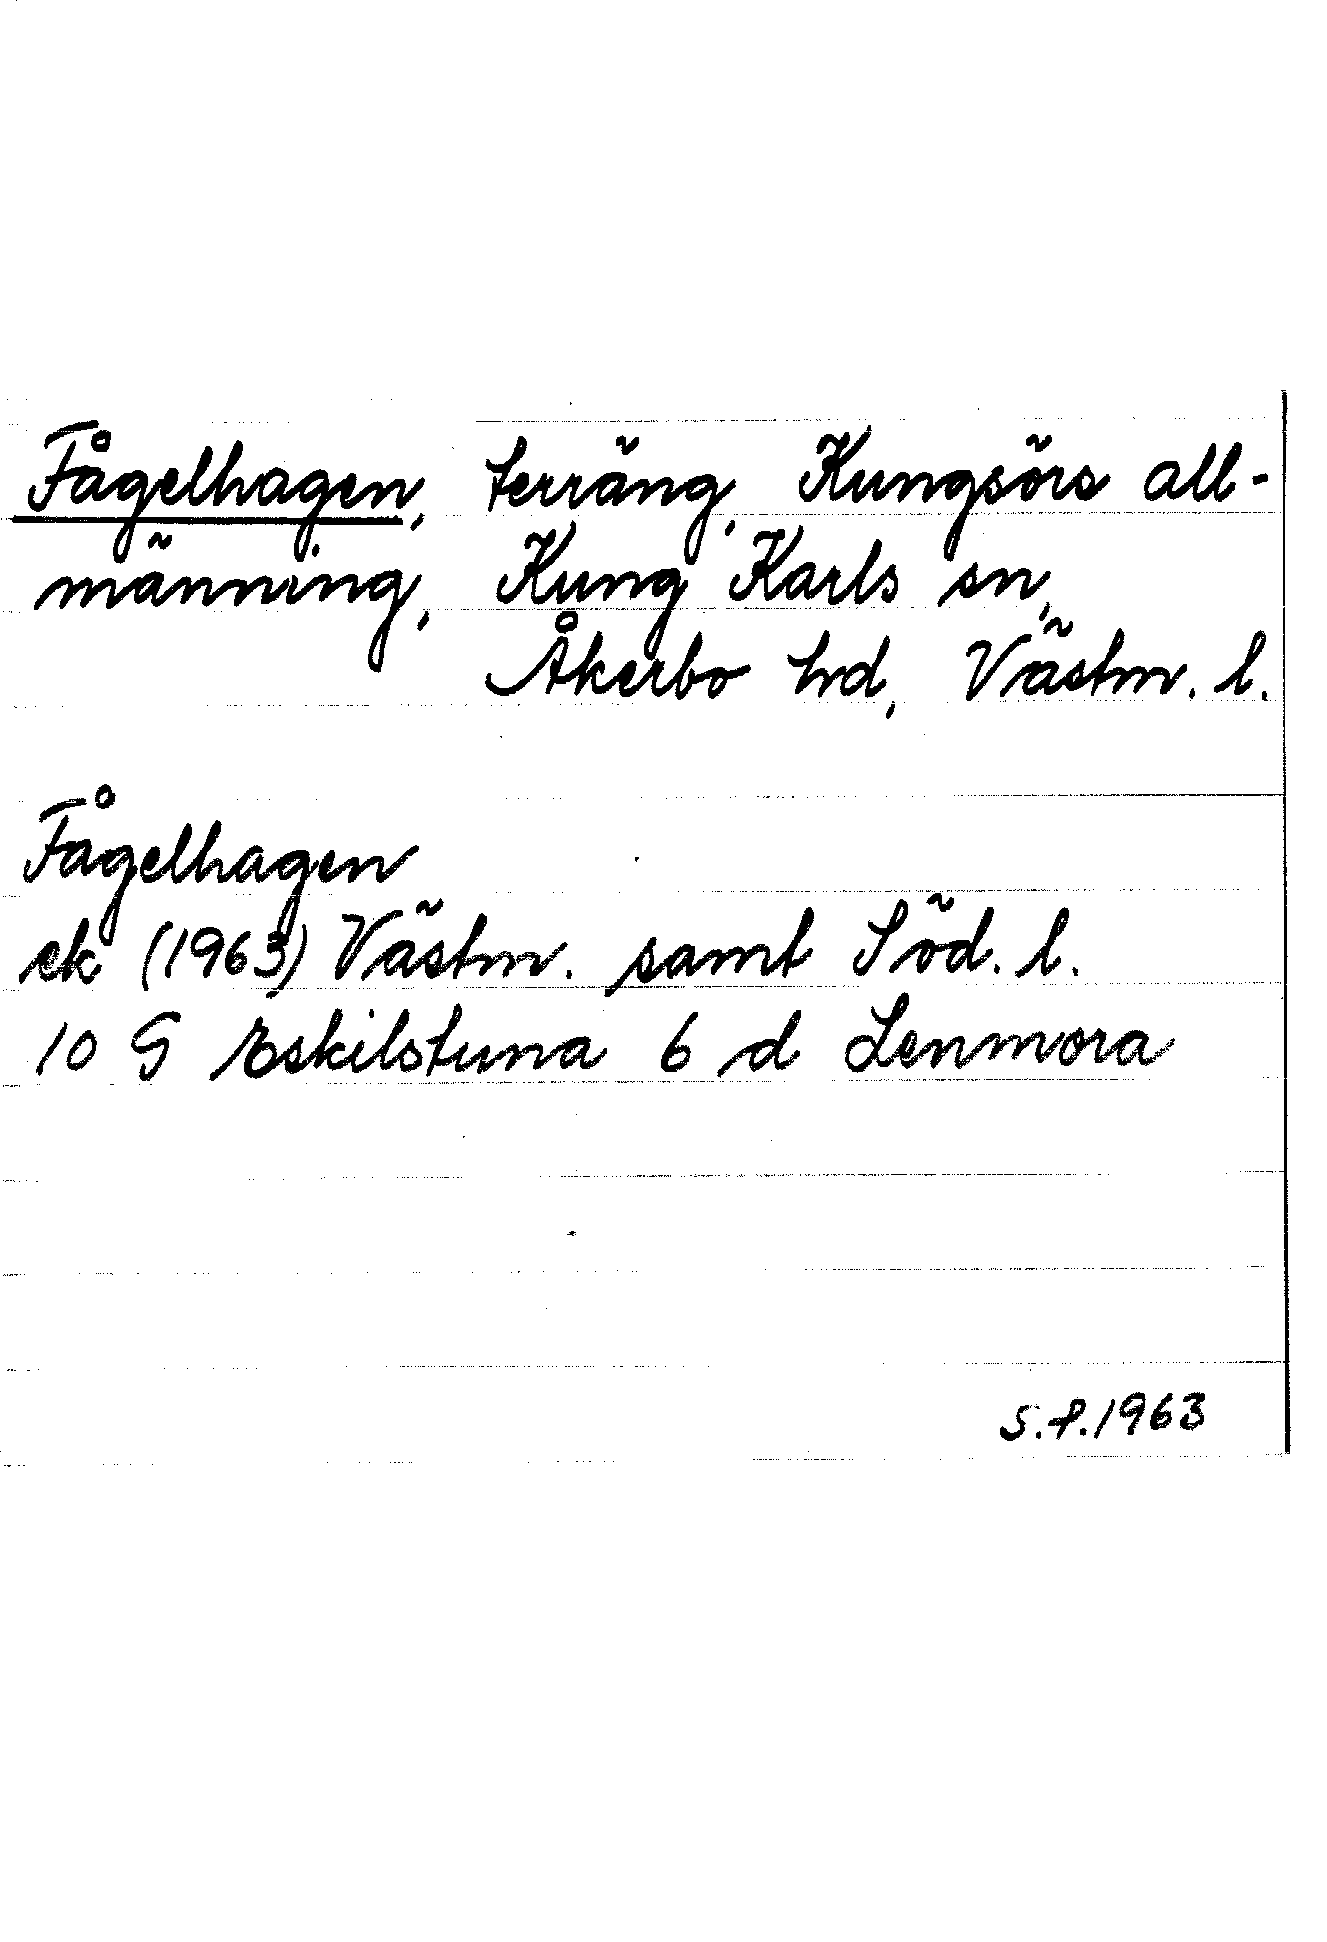 Fågelhagen, terräng, Kungsörs all-
männing, Kung Karls sn,
Åkerbo hd, Västm. l.
Fågelhagen
ek (1963) Västm. samt Söd. l.
10 G Eskilstuna 6 d Lenmora
S.P.1963